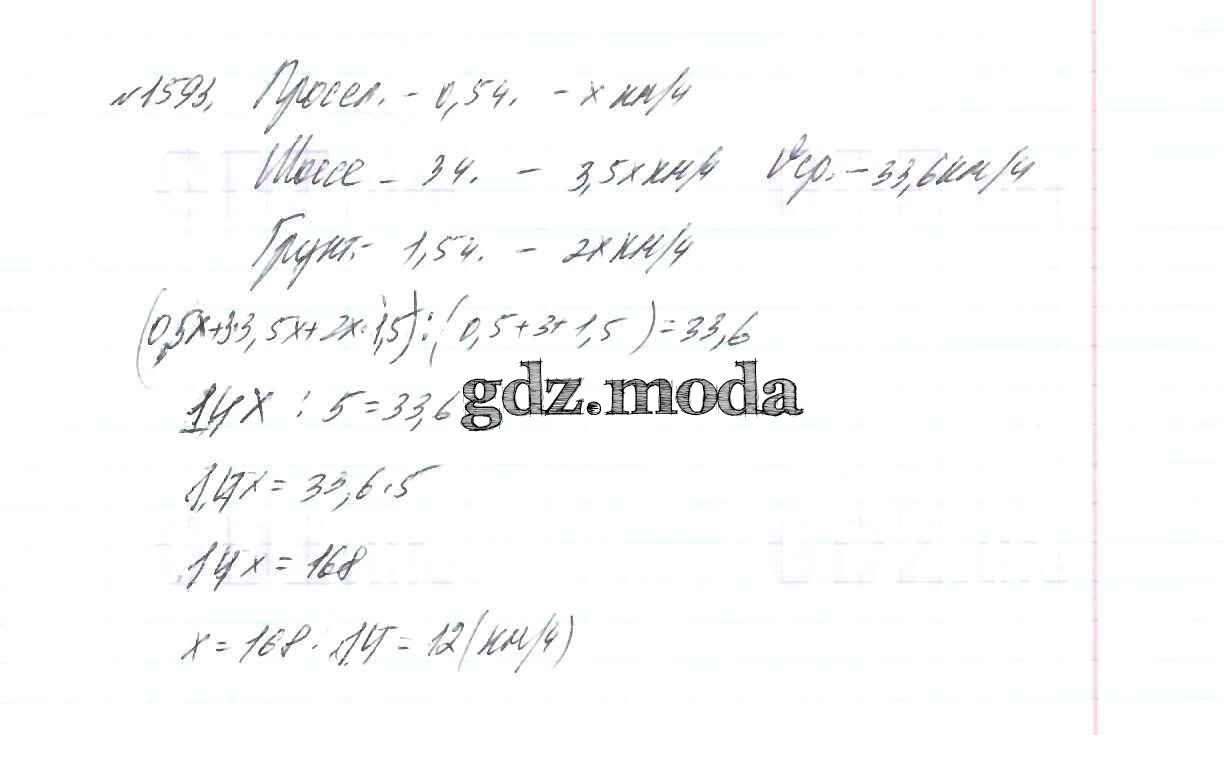 №1593. Просел. - 0,5ч. - х км/ч
Шоссе - 3ч. - 3,5х км/ч Vср. - 33,6 км/ч
Грунт. - 1,5ч. - 2х км/ч
(0,5х+3·3,5х+2х·1,5):(0,5+3+1,5)=33,6
14х : 5 = 33,6
gdz.moda
14х = 33,6·5
14х = 168
х = 168 : 14 = 12 (км/ч)